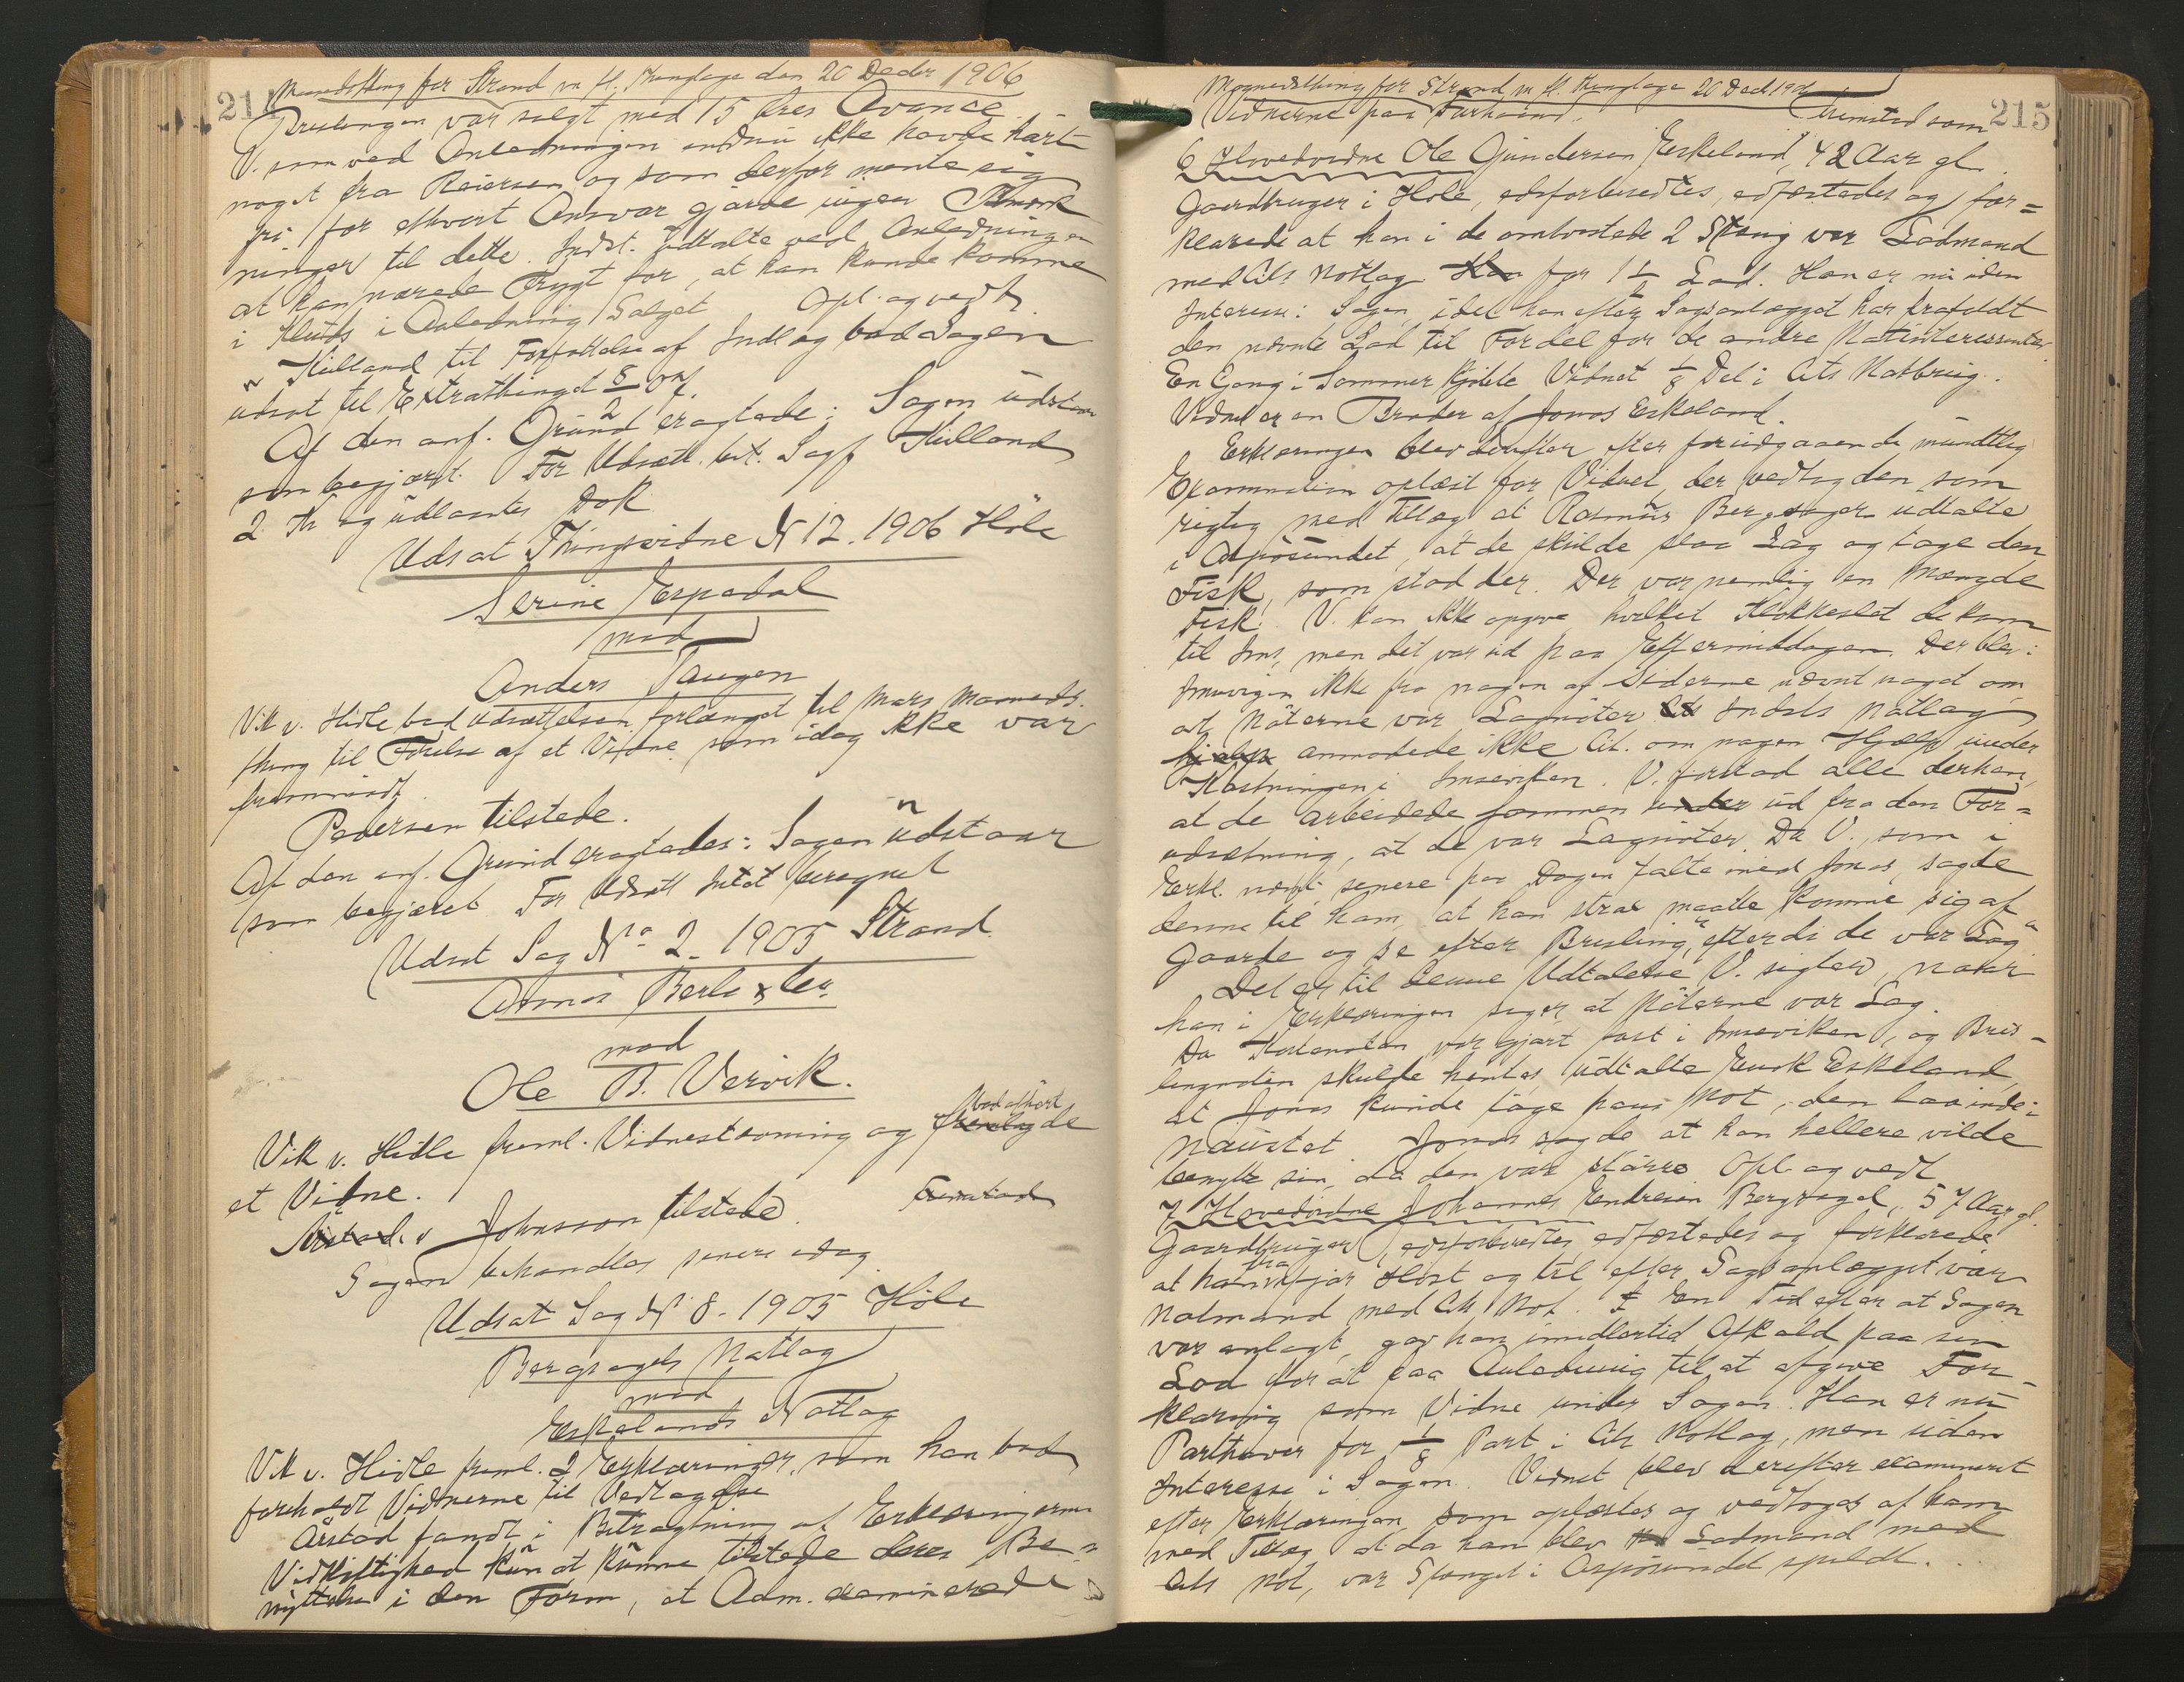 214
Maanedsthing for Strand m. fl. Thinglage den 20 Decbr 1906
Brislingen var solgt med 15 Øres Avance
V. som ved Anledningen endnu ikke havde hørt
noget fra Reiersen og som derfor mente sig
fri for ethvert Ansvar gjorde ingen Anmærk
ninger til dette. Indst. udtalte ved Anledningen
at han nærede Frygt for, at han kunde komme
i Kluds i Anledning Salget Opl. og vedt.
Kielland til Forfattelse af Indl og bad Sagen
udsat til Extrathinget 5/2 07.
Af den anf. Grund eragtede: Sagen udstaar
som begjært. For Udsætt. bet. Sagf. Kielland
2 Kr og udlaantes Dok.
Udsat Thingsvidne N 12. 1906 Høle
Serine Espedal
mod
Anders Taugen
Vik v. Hidle bad Udsættelsen forlænget til Mars Maaneds
thing til Førelse af et Vidne som idag ikke var
fremmødt.
Pedersen tilstede.
Af den anf. Grund eragtedes: Sagen udstaar
som begjæret. For Udsætt intet beregnet
Udsat Sag No 2. 1905 Strand
Asmos Berle
mod
Ole B. Vervik.
Vik v. Hidle freml. Vidnestævning og bad afhørt
et Vidne.
Johnsson tilstede. Fremstod
Sagen behandles senere idag.
Udsat Sag N 8 - 1905 Høle
Bergsagels Notlag
mod
Eskelands Notlag
Vik v. Hidle freml. 2 Erklæringer, som han bad
foreholdt Vidnerne til Vedtagelse
Årstad fandt i Betragtning af Erklæringernes
Vidløftighed kun at kunne tilstede deres Be=
nyttelse i den Form, at Adm. examinerede
215
Maanedsthing for Strand m. fl. Thinglage 20 Decb 1906
Vidnerne paa Forhaand. Fremstod som
6 Hovedvidne Ole Gundersen Eskeland, 42 Aar gl.
Gaardbruger i Høle, edsforberedtes, edfæstedes og for=
klarede at han i de omtvistede 2 Stæng var Lodmand
med Cits Notlag for 1 Lod. Han er nu uden
Interesse i Sagen, idet han efter Sagsanlægget har frafaldt
den nævnte Lod til Fordel for de andre Notinteressenter.
En Gang i Sommer kjøbte Vidnet 1/8 Del i Cits Notbrug.
Vidnet er en Broder af Jonas Eskeland.
Erklæringen blev derefter efter forudgaaende mundtlig
Examination oplæst for Vidnet, der vedtog den som
rigtig med Tillæg at Rasmus Bergsagel udtalte
i Aspøsundet, at de skulde slaa Lag og tage den
Fisk, som stod der. Der var nemlig en Mængde
Fisk. V. kan ikke opgive hvilket Klokkeslet de kom
til Ims, men det var ud paa Eftermiddagen. Der blev i
Imsvigen ikke fra nogen af Siderne nævnt noget om
at Nøterne var Lagnøter. Indsts Notlag
anmodede ikke Cit. om nogen Hjælp under
Kastningen i Imsviken. V. forstod alle derhen,
at de arbeidede sammen ud fra den For=
udsætning, at de var Lagnøter. Da V., som i
Erkl. nævnt, senere paa Dagen talte med Jonas, sagde
denne til ham, at han strax maatte komme sig af
Gaarde og se efter Brisling, "efterdi de var Lag"
Det er til denne Udtalelse V. sigter, naar
han i Erklæringen siger at Nøterne var Lag.
Da Kastenoten var gjort fast i Imsviken, og Bris=
lingnoten skulde hentes udtalte Enok Eskeland
at Jonas kunde tage hans Not, den laa inde i
Naustet. Jonas sagde at han hellere vilde
benytte sin, da den var større Opl. og vedt.
7 Hovedvidne Johannes Endresen Bergsagel, 57 Aar gl.
Gaardbruger, edsforberedtes, edfæstedes og forklarede
at han fra ifjor Høst og til efter Sagsanlægget var
Notmand med Cits Not. En Tid efter at Sagen
var anlagt, gav han imidlertid Afkald paa sin
Lod for at faa Anledning til at afgive For=
klaring som Vidne under Sagen. Han er nu
Parthaver for 1/8 Part i Cits Notlag, men uden
Interesse i Sagen. Vidnet blev derefter examineret
efter Erklæringen som oplæstes og vedtoges af ham
med Tillæg at da han blev Lodmand med
Cits Not, var Stænget i Aspøsundet spildt.